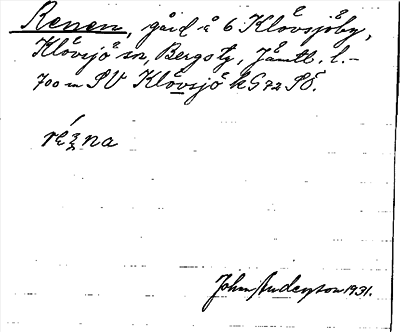 Renen, gård å 6 Klövsjöby,
Klövsjö sn, Bergs tg, Jämtl. l. –
700 m SV Klövsjö k G72 SÖ.
John Anderson 1931.